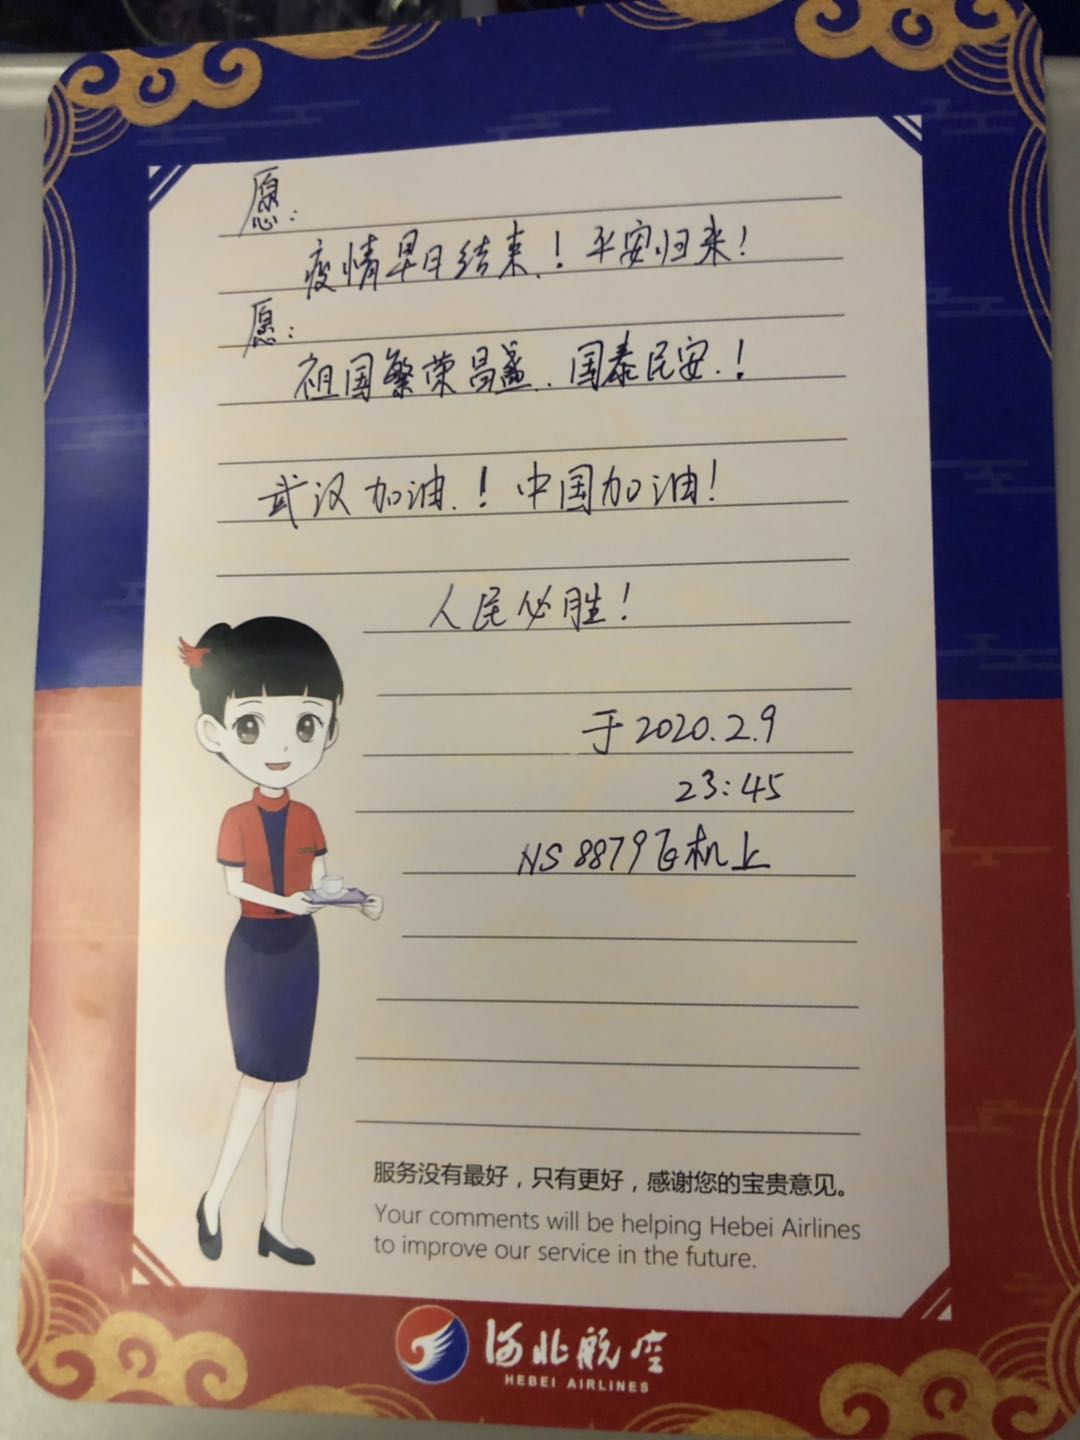 愿:
疫情早日结束.！平安归来！
愿:
祖国繁荣昌盛.国泰民安.！
武汉加油.！中国加油！
人民必胜！
于2020.2.9
23:45
NS8879飞机上
服务没有最好，只有更好，感谢您的宝贵意见。
Your comments will be helping Hebei Airlines
to improve our service in the future.
河北航空
HEBEI AIRLINES